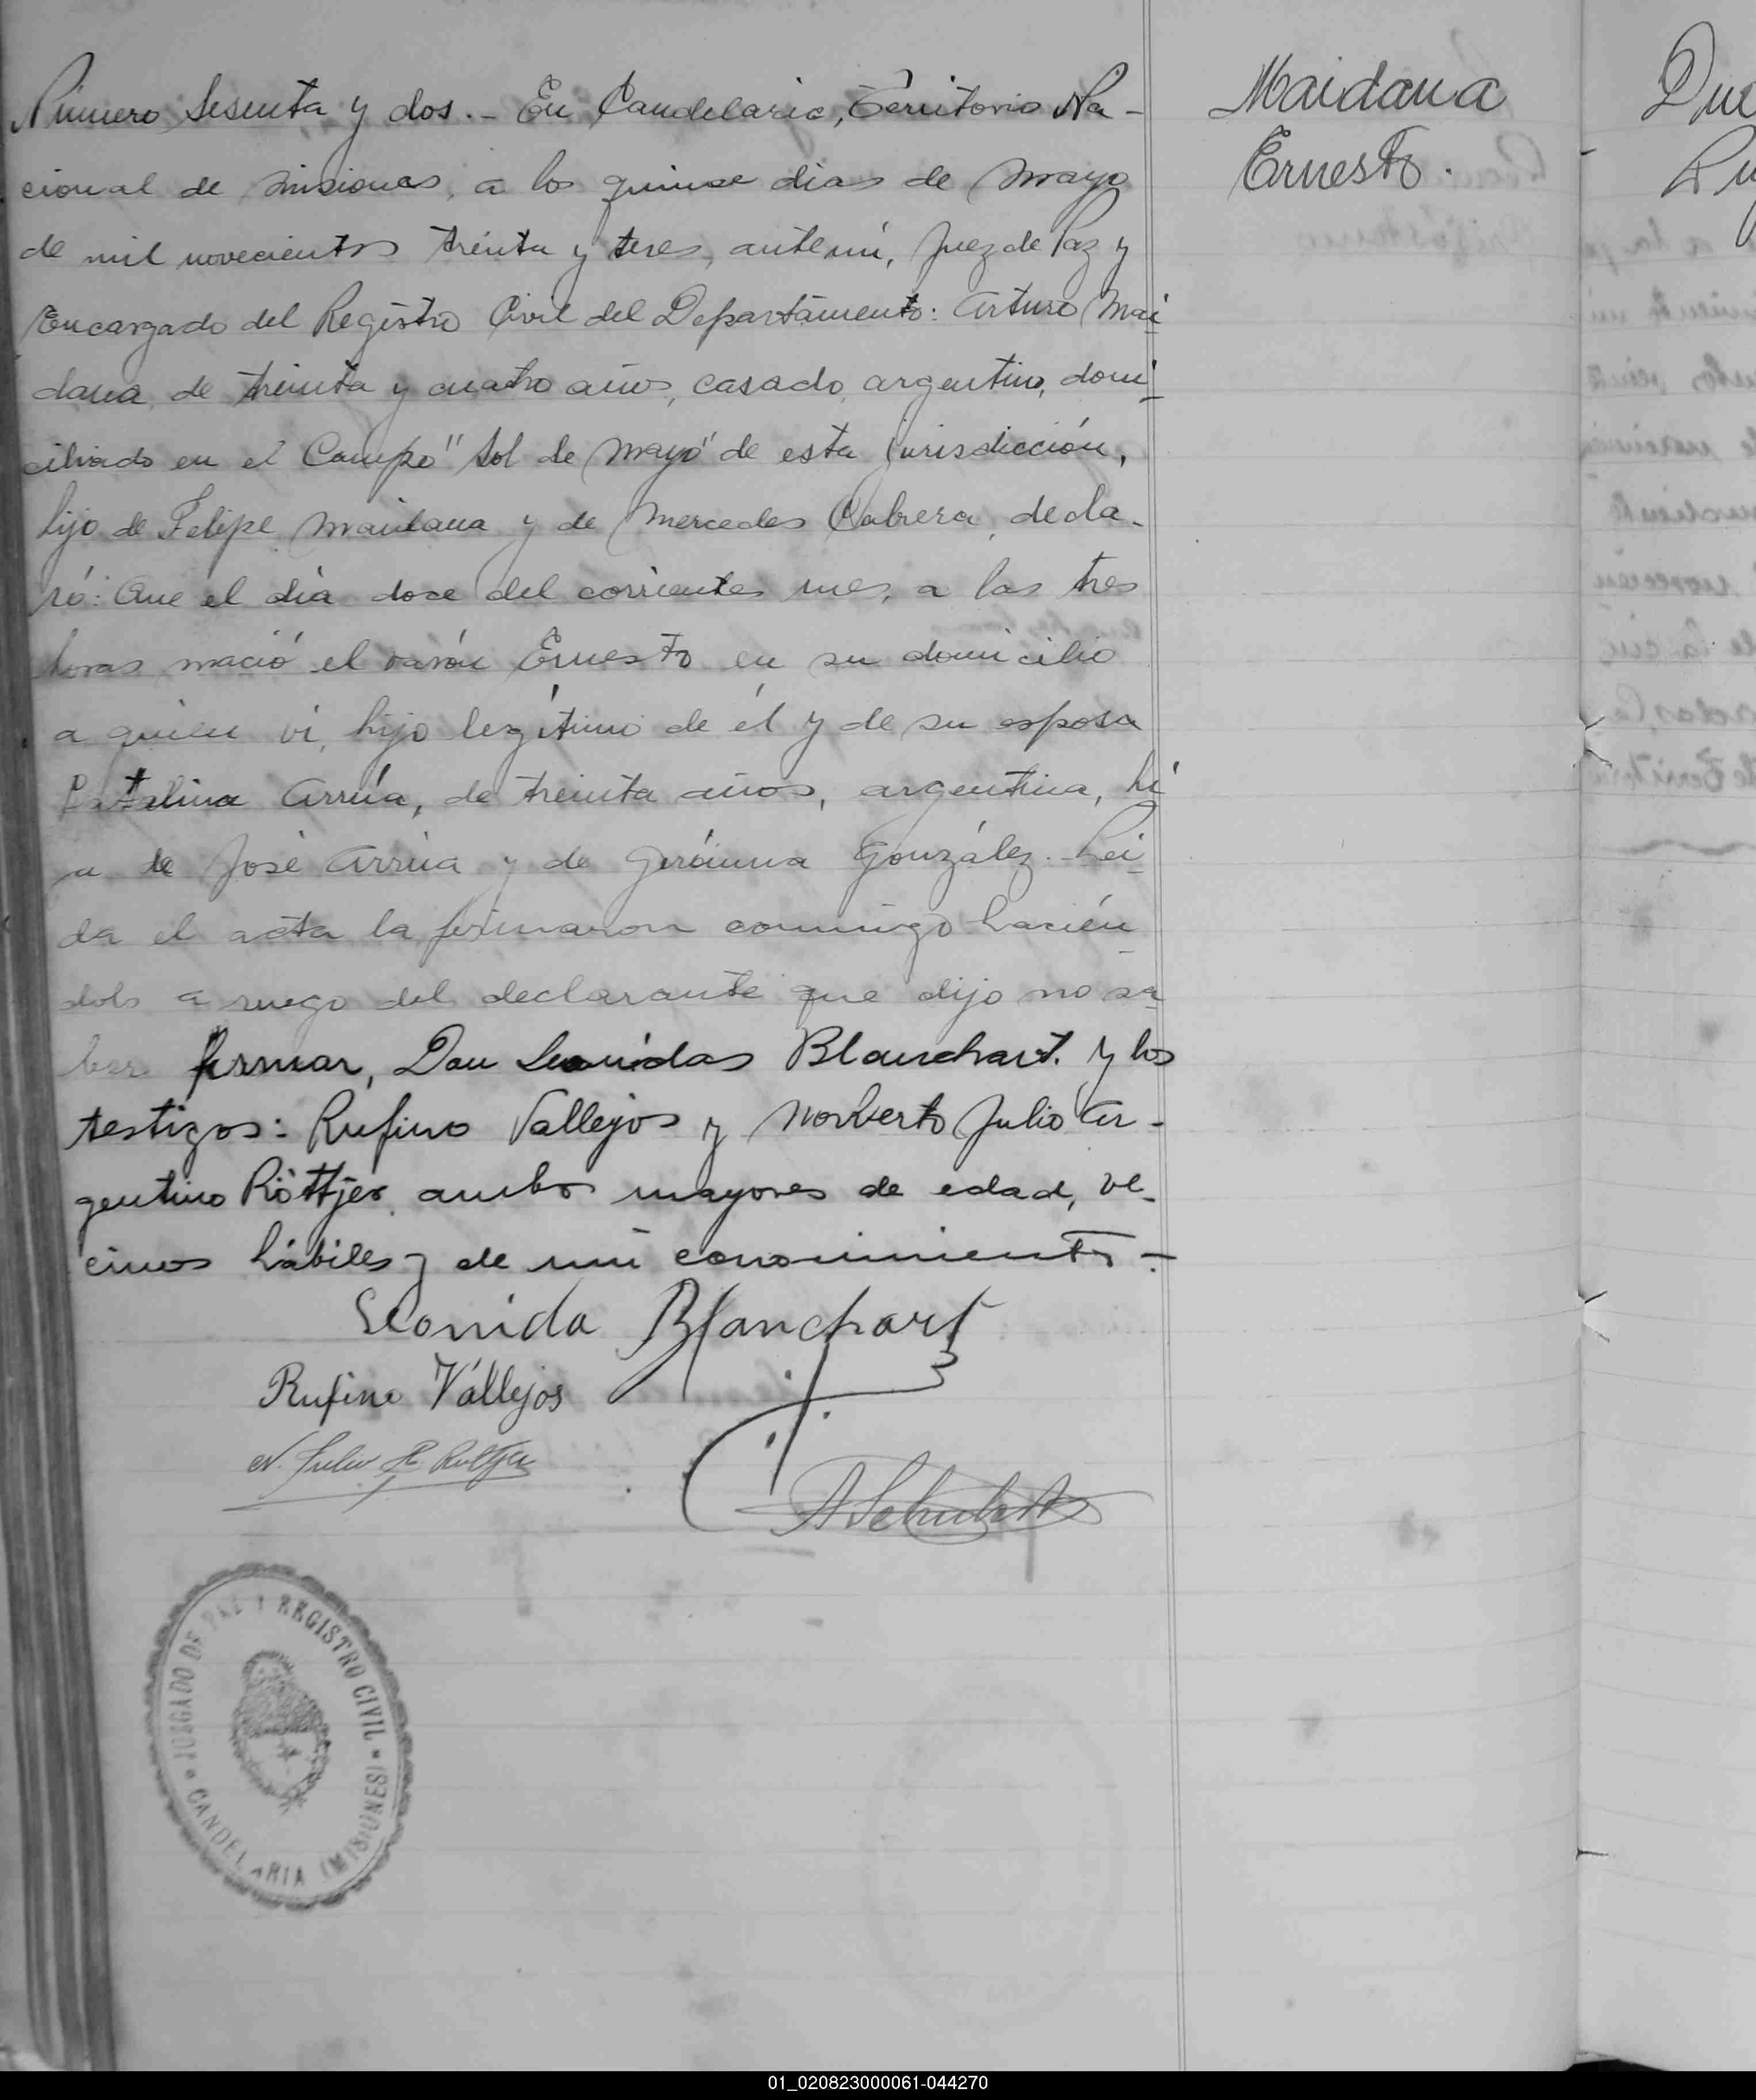 Número Sesenta y dos.- En Candelaria, Territorio Na-
cional de Misiones, a los quince dias de Mayo
de mil novecientos treinta y tres, ante mí, Juez de Paz y
Encargado del Registro Civil del Departamento: Arturo Mai
dana, de treinta y cuatro años, casado, argentino, domi-
ciliado en el Campo "Sol de Mayo" de esta jurisdicción,
hijo de Felipe Maidana y de Mercedes Cabrera, decla-
ró: Que el día doce del corriente mes, a las tres
horas nació el varón Ernesto en su domicilio
a quien ví, hijo legítimo de él y de su esposa
Catalina Arrúa, de treinta años, argentina, hi
ja de José Arrúa y de Gerónima González. Leí-
da el acta la firmaron conmigo hacién-
dolo a ruego del declarante que dijo no sa
ber firmar, Don Leonidas Blanchart. y los
testigos: Rufino Vallejos y Norberto Julio Ar-
gentino Röttjer, ambos mayores de edad, ve-
cinos hábiles y de mi conocimiento.-
Leonida Blanchart
Rufino Vallejos
N. Julio A. Rottjer
A Schubert
JUZGADO DE PAZ Y REGISTRO CIVIL
CANDELARIA (MISIONES)
Maidana
Ernesto.
01_020823000061-044270